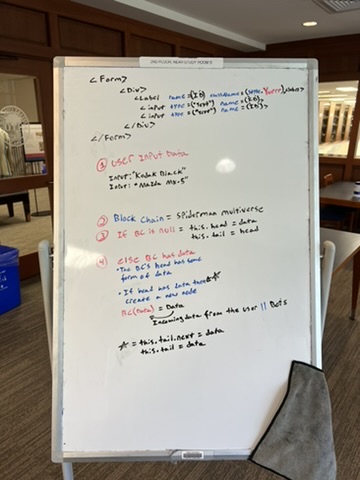 2ND FLOOR, NEAR STUDY ROOMS
<Form>
<Div>
<Label name=(ID)
<input type=("text") name=(ID)>
<input type=("text") name=(ID)>
</Div>
</Form>
① User input Data
Input: "Kodak Black"
Input: "Maida MX-5"
② Block Chain = Spiderman multiverse
③ If BC is null = this.head = data
this.tail = head
④ else BC has data
• The BC's head has some
form of data
• If head has data then ☆
create a new node
BC(Data) = Data
Incoming data from the user || Dets
☆ = this.tail.next = data
this.tail = data